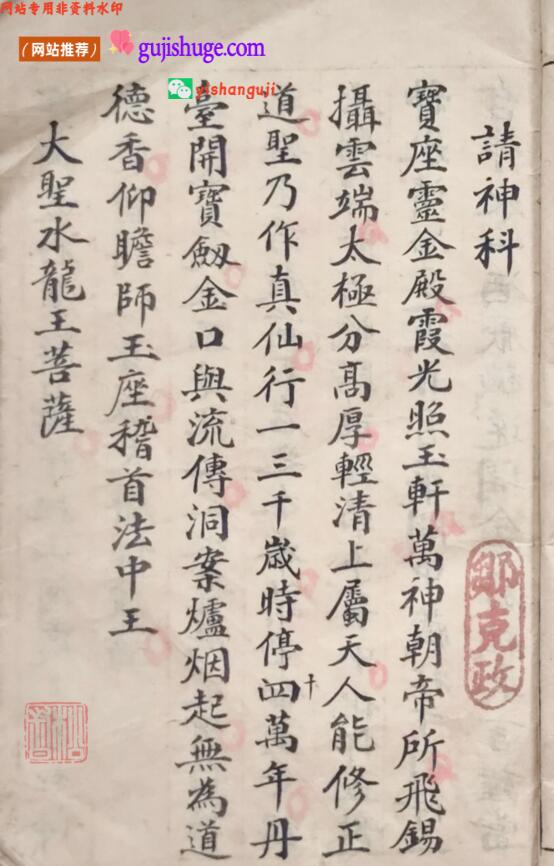 网站专用非资料水印
（网站推荐）
gujishuge.com
yishanguji
請神科
寶座靈金殿霞光照玉軒萬神朝帝所飛錫
攝雲端太極分高厚輕清上屬天人能修正
道聖乃作真仙行一三千歲時停四十萬年丹
臺開寶劔金口與流傳洞案爐烟起無為道
德香仰瞻師玉座稽首法中王
大聖水龍王菩薩
鄒克政